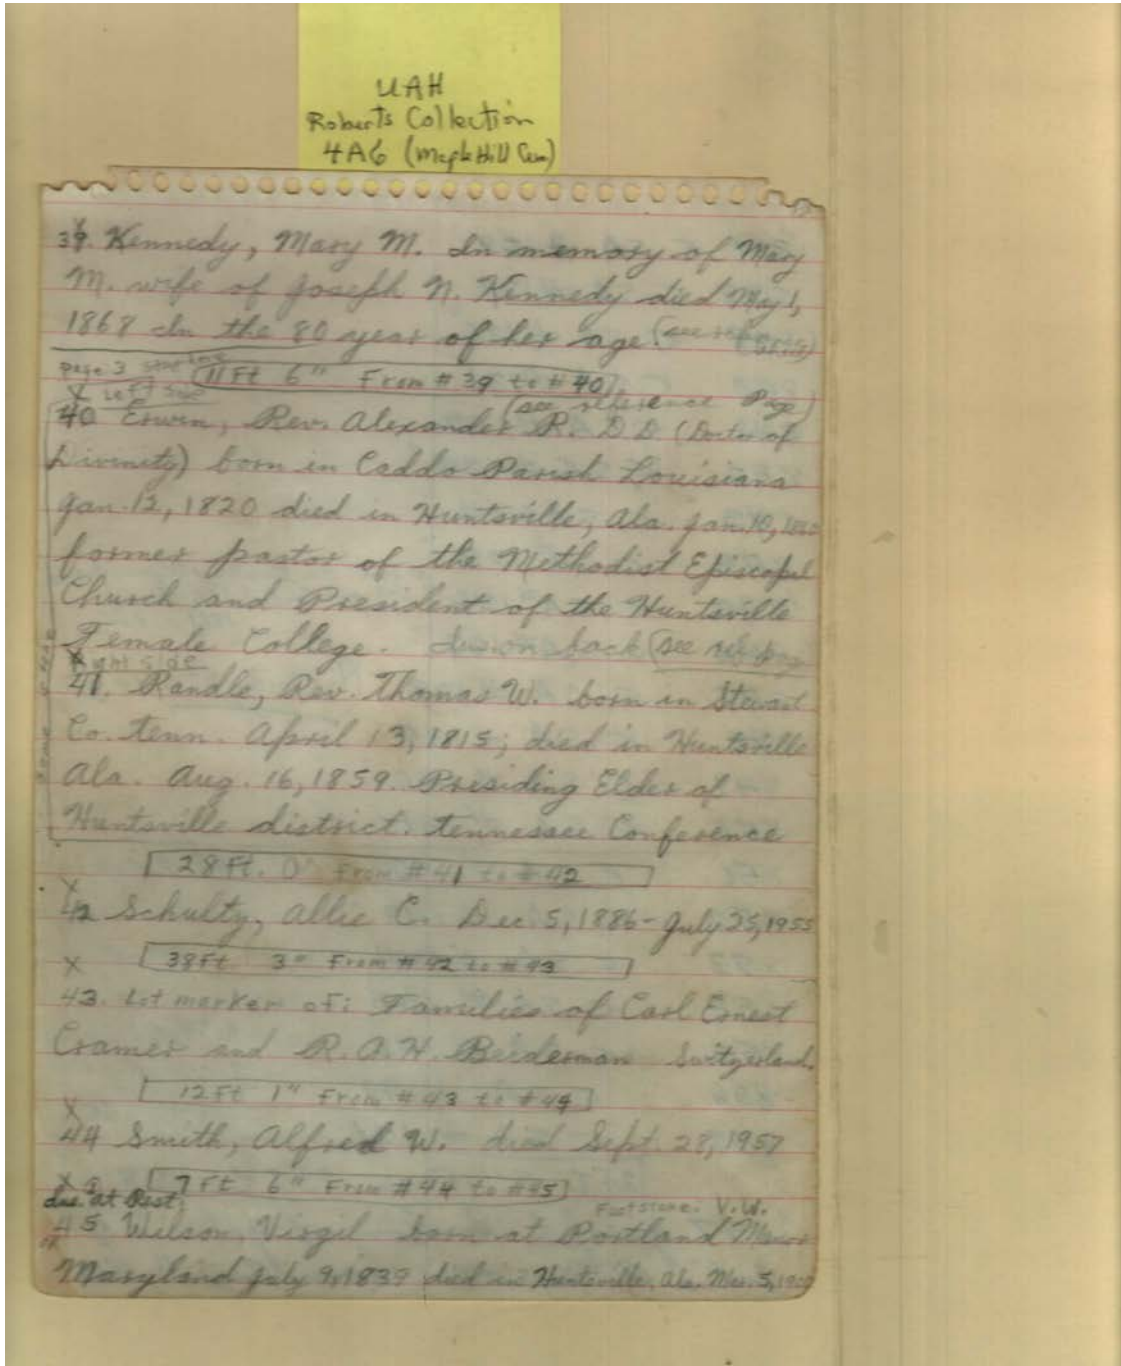 UAH
Roberts Collection
4A6 (Maple Hill Cem)
39. Kennedy, Mary M. In memory of Mary
M. wife of Joseph N. Kennedy died May 1,
1868 In the 80 year of her age. (see
page 3
11 Ft 6" From #39 to #40
X Left side
(see reference Page)
40 Erwin, Rev. Alexander R. D D (Doctor of
Divinity) born in Caddo Parish Louisiana
Jan. 12, 1820 died in Huntsville, Ala. Jan. 10,
former pastor of the Methodist Episcopal
Church and President of the Huntsville
Female College. on back (see ref page
Right side
41. Randle, Rev. Thomas W. born in Stewart
Co. Tenn. April 13, 1815; died in Huntsville
Ala. Aug. 16, 1859. Presiding Elder of
Huntsville district. Tennessee Conference
28 Ft. 0" From #41 to #42
X
42 Schulty, Allie C. Dec 5, 1886 - July 25, 1955
X 38 Ft 3" From #42 to #43
43. Lot marker of: Families of Carl Ernest
Cramer and R.A.H. Beiderman Switzerland.
12 Ft 1" From #43 to #44
X
44 Smith, Alfred W. died Sept. 28, 1957
X 7 Ft 6" From #44 to #45
At Rest Footstone: V.W.
45. Wilson, Virgil born at Portland Manor
Maryland July 9, 1839 died in Huntsville, Ala. Mar. 5,